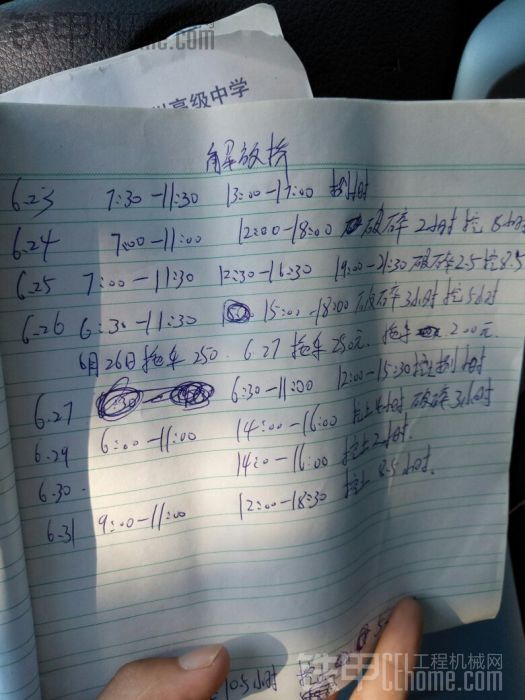 铁甲 CEhome.com
高级中学
解放桥
6.23 7:30-11:30 13:00-17:00 挖 小时
6.24 7:00-11:00 12:00-18:00 破碎2小时 挖8小时
6.25 7:00-11:30 12:30-16:30 19:00-21:30 破碎2.5 挖8.5
6.26 6:30-11:30 15:00-18:00 破碎3小时 挖5小时
6月26日拖车250. 6.27 拖车250元. 拖车 200元.
6.27 6:30-11:00 12:00-15:30 挖土 小时
6.29 6:00-11:00 14:00-16:00 挖土4小时 破碎3小时
6.30. 14:0-16:00 挖土2小时.
6.31 9:00-11:00 12:00-18:30 挖土 8.5小时.
10.5小时
铁甲 工程机械网
CEhome.com